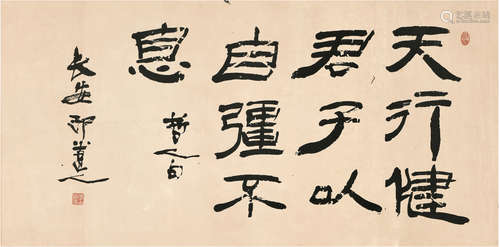 天行健
君子以
自彊不
息
哲人句
長安邱道人